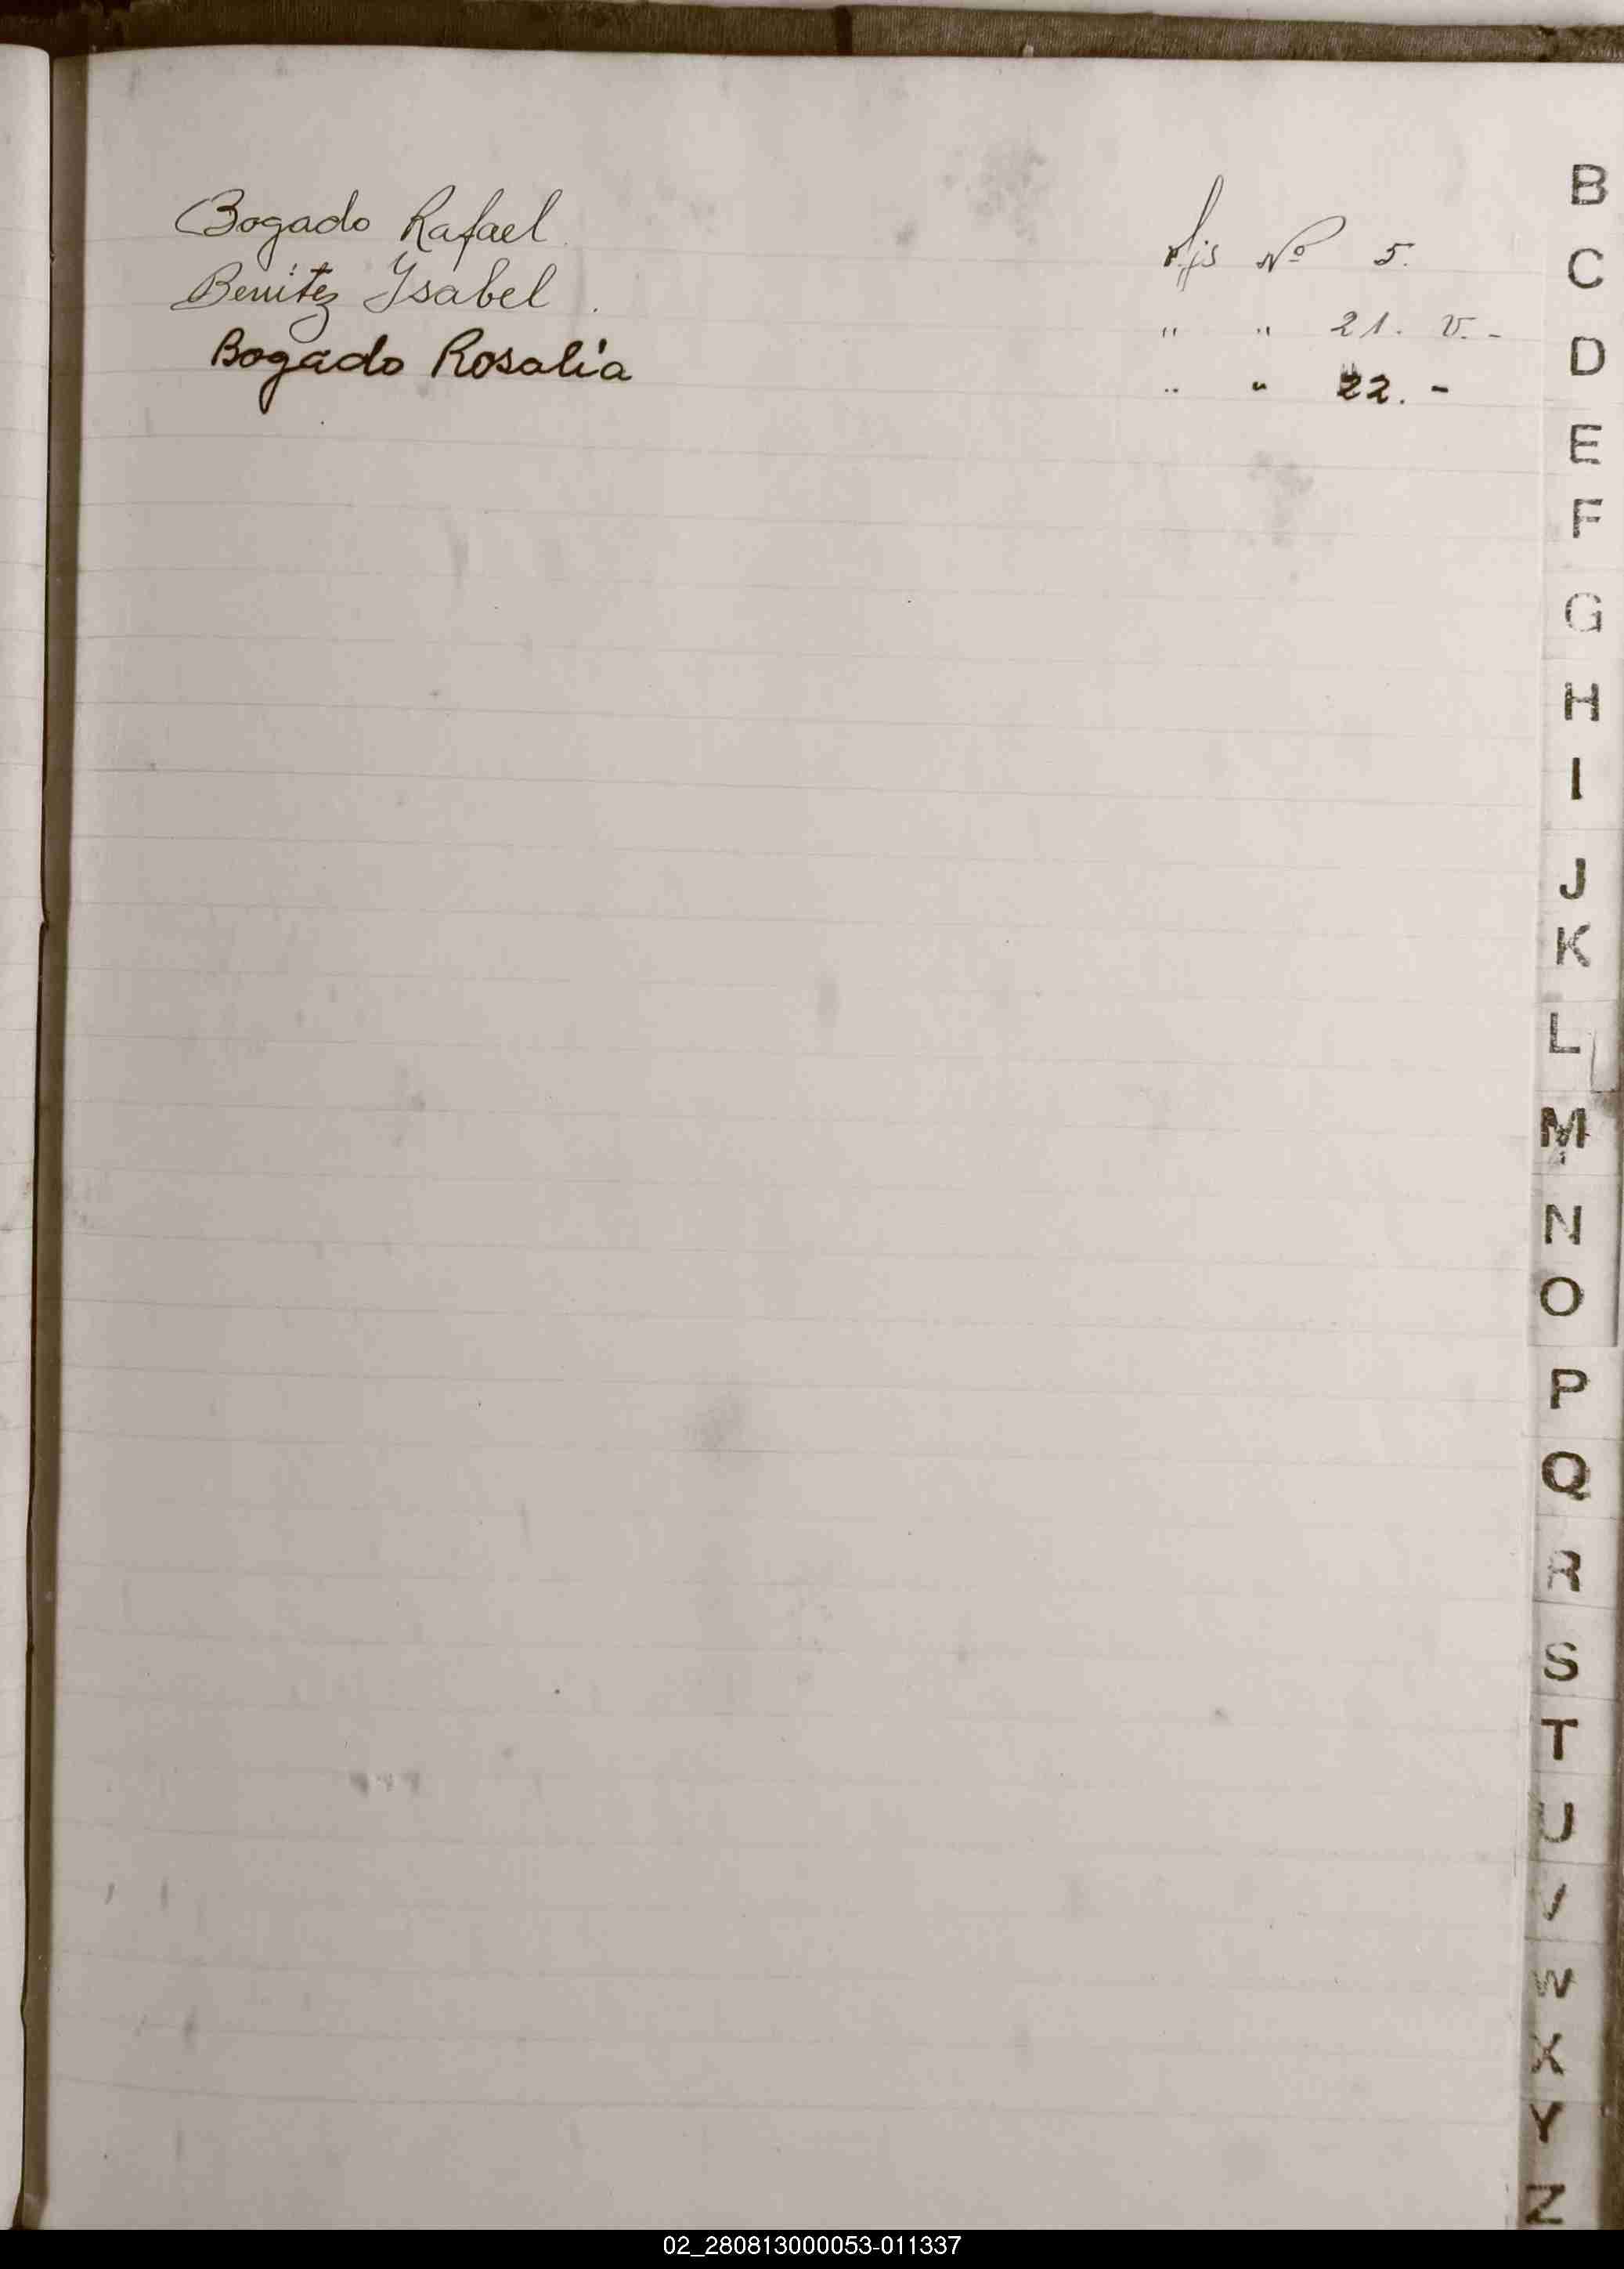 Bogado Rafael. fjs Nº 5.
Benítez Ysabel. " " 21. v. -
Bogado Rosalía " " 22. -
B
C
D
E
F
G
H
I
J
K
L
M
N
O
P
Q
R
S
T
U
V
W
X
Y
Z
02_280813000053-011337